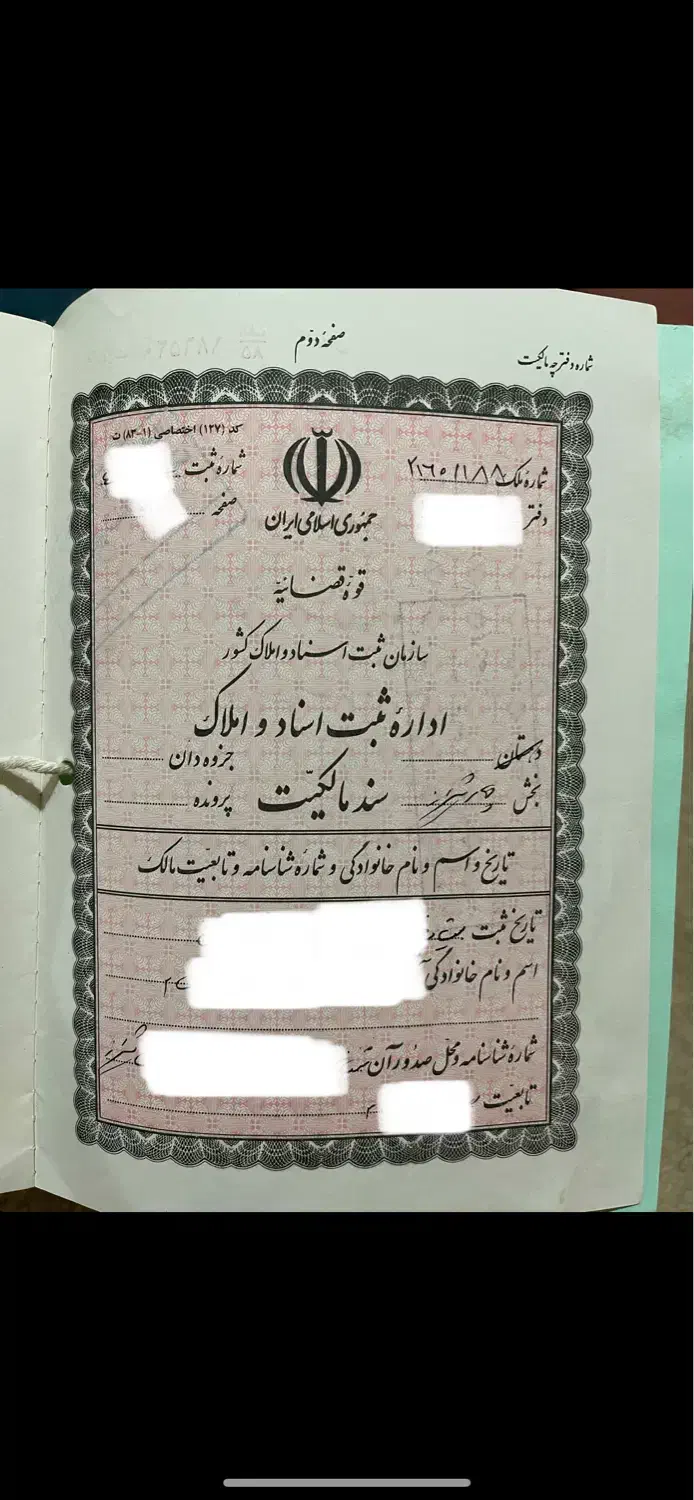 صفحهٔ دوّم
شماره دفترچه مالکیت
کد (۱۲۷) اختصاصی (۱-۸۳) ت
شمارهٔ ملک ۲۱۶۰/۱۱۸۸
شمارهٔ ثبت
دفتر
صفحه
جمهوری اسلامی ایران
قوهٔ قضائیّه
سازمان ثبت اسناد و املاک کشور
ادارهٔ ثبت اسناد و املاک
دهستان
جزوه دان
بخش
سند مالکیّت
پرونده
تاریخ و اسم و نام خانوادگی و شمارهٔ شناسنامه و تابعیّت مالک
تاریخ ثبت
اسم و نام خانوادگی
شمارهٔ شناسنامه و محلّ صدور آن
تابعیّت